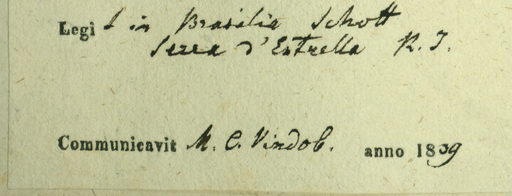 Legit in Brasilia Schott
Serra d'Estrella R. J.
Communicavit M. C. Vindob. anno 1839